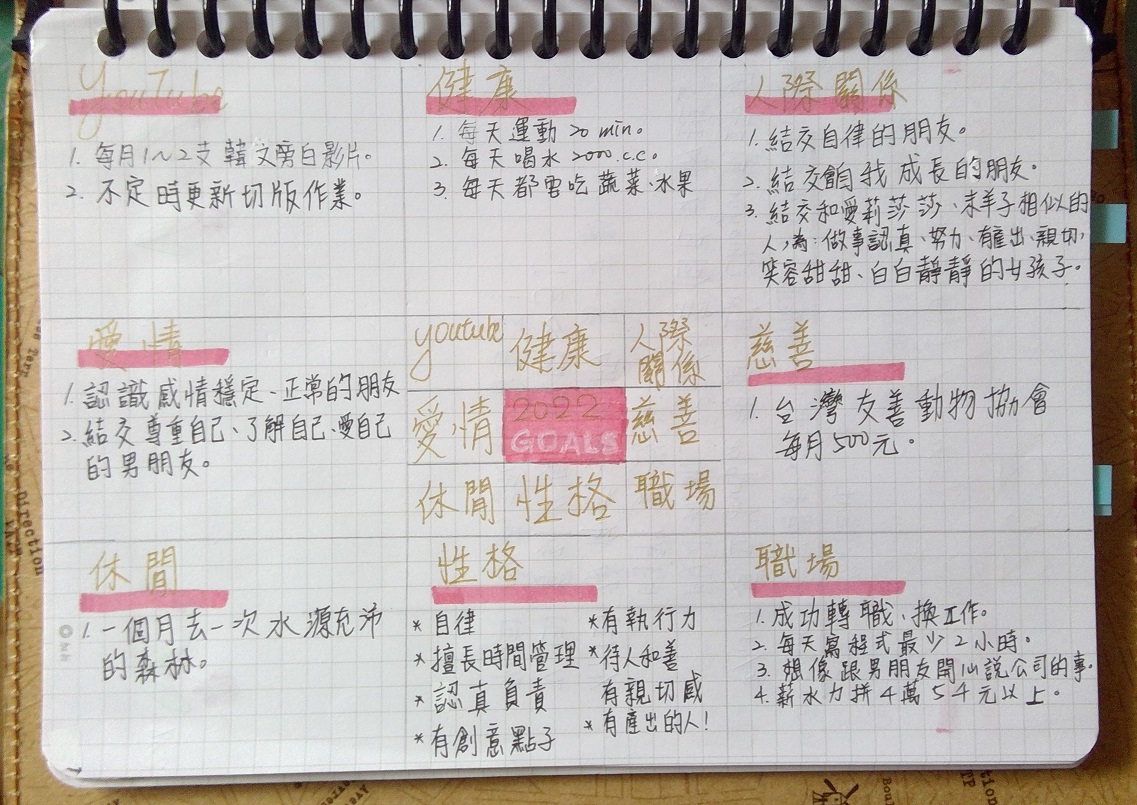 YouTube
1. 每月1~2支韓文旁白影片。
2. 不定時更新切版作業。
健康
1. 每天運動 20 min。
2. 每天喝水 2000.c.c。
3. 每天都要吃蔬菜、水果
人際關係
1. 結交自律的朋友。
2. 結交能自我成長的朋友。
3. 結交和愛莉莎莎、末羊子相似的
人,為:做事認真、努力、有產出、親切、
笑容甜甜、白白靜靜的女孩子。
愛情
1. 認識感情穩定、正常的朋友
2. 結交尊重自己、了解自己、愛自己
的男朋友。
youtube 健康 人際
關係
愛情 2022 慈善
GOALS
休閒 性格 職場
慈善
1. 台灣友善動物協會
每月500元。
休閒
1. 一個月去一次水源充沛
的森林。
性格
* 自律
* 擅長時間管理
* 認真負責
* 有創意點子
* 有執行力
* 待人和善
有親切感
* 有產出的人!
職場
1. 成功轉職、換工作。
2. 每天寫程式最少2小時。
3. 想像跟男朋友開心說公司的事。
4. 薪水力拼4萬5千元以上。